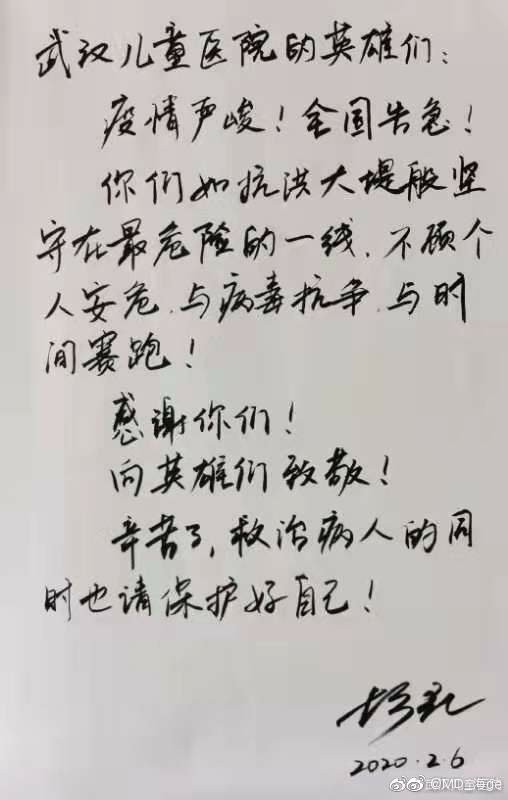 武汉儿童医院的英雄们：
疫情严峻！全国告急！
你们如抗洪大堤般坚
守在最危险的一线，不顾个
人安危，与病毒抗争，与时
间赛跑！
感谢你们！
向英雄们致敬！
辛苦了，救治病人的同
时也请保护好自己！
2020.2.6